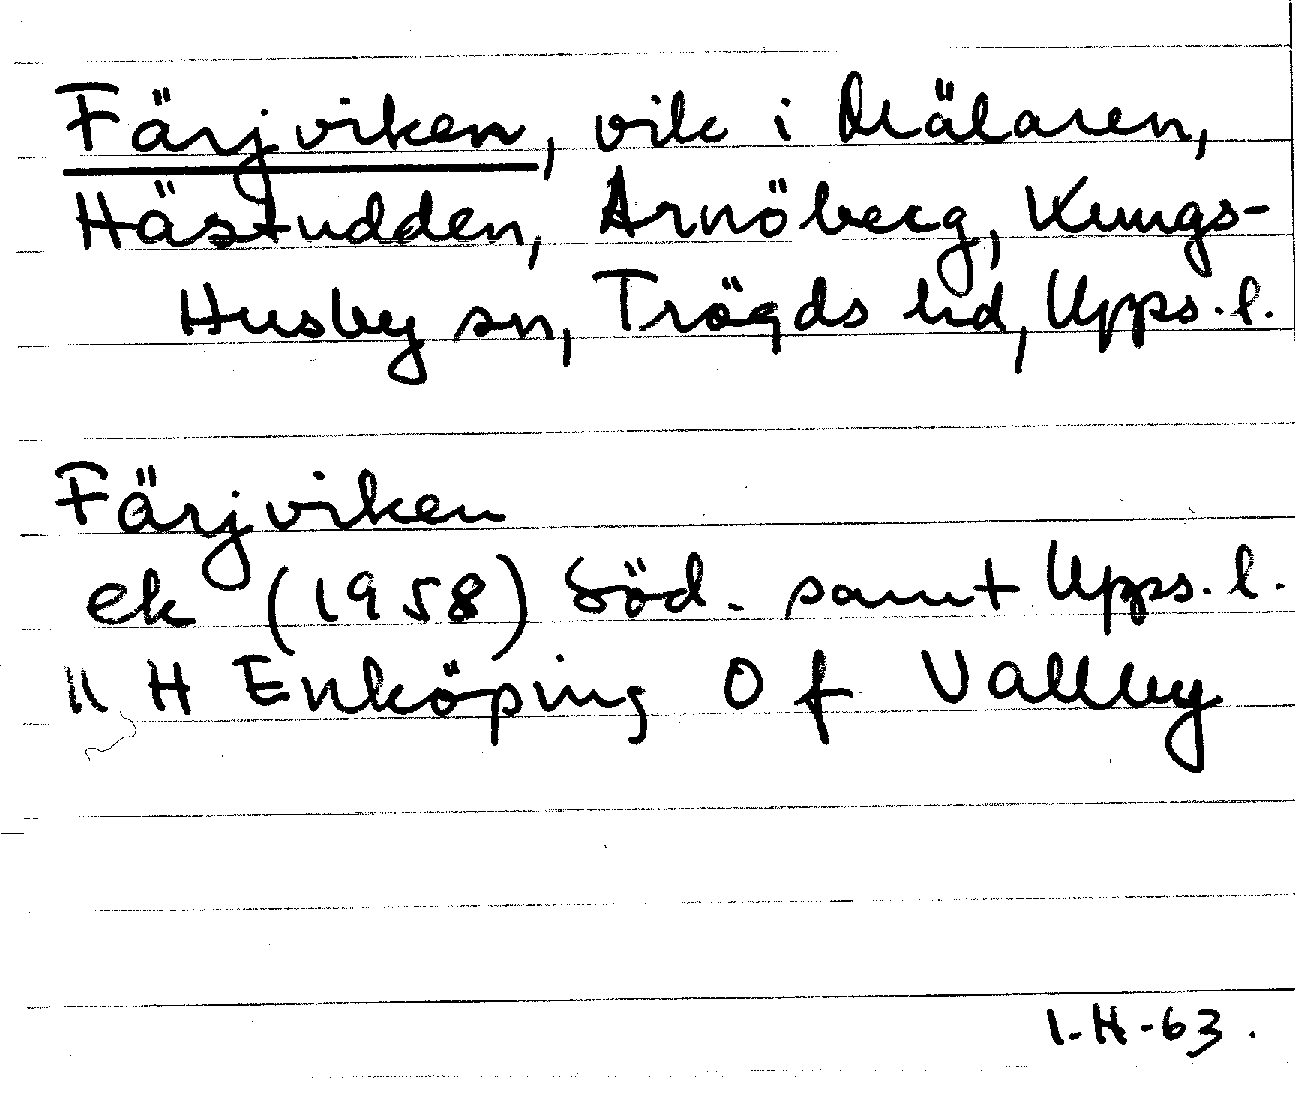 Färjviken, vik i Mälaren,
Hästudden, Arnöberg, Kungs-
Husby sn, Trögds hd, Upps. l.
Färjviken
ek (1958) Söd. samt Upps. l.
11 H Enköping O f Vallby
I.H-63.